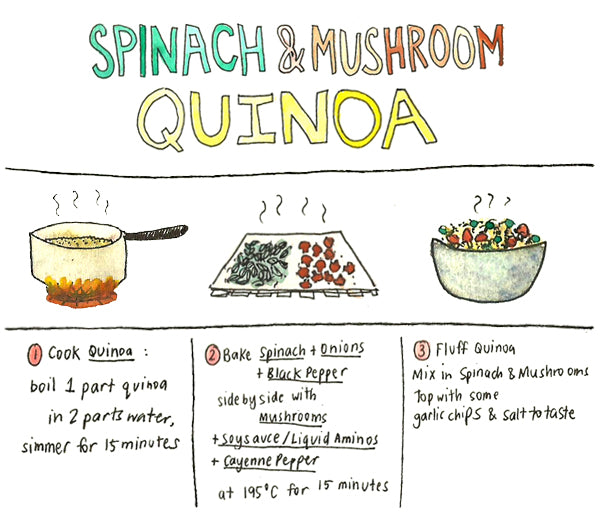 SPINACH & MUSHROOM
QUINOA
1 Cook Quinoa :
boil 1 part quinoa
in 2 parts water,
simmer for 15 minutes
2 Bake Spinach + Onions
+ Black Pepper
side by side with
Mushrooms
+ Soysauce/Liquid Aminos
+ Cayenne Pepper
at 195°C for 15 minutes
3 Fluff Quinoa
Mix in Spinach & Mushrooms
Top with some
garlic chips & salt to taste